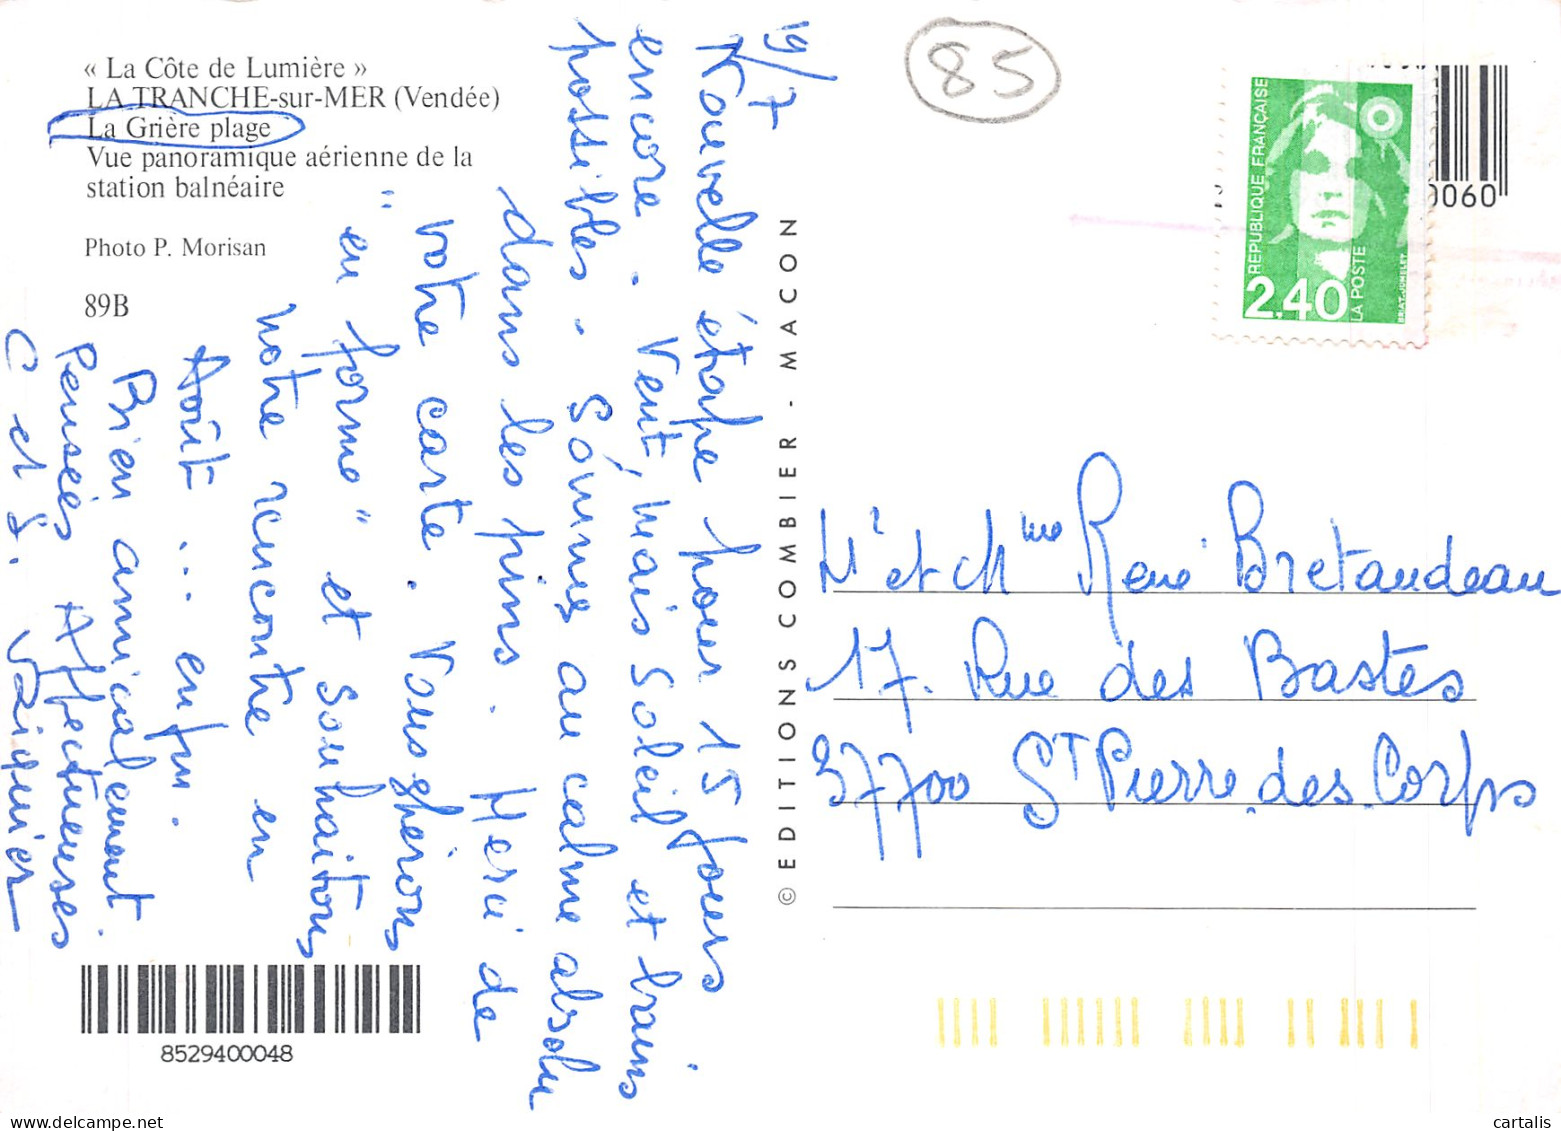 « La Côte de Lumière »
LA TRANCHE-sur-MER (Vendée)
La Grière plage
Vue panoramique aérienne de la
station balnéaire
Photo P. Morisan
89B
19/7
Nouvelle étape pour 15 jours
encore. Vent, mais Soleil et bains
possibles. Sommes au calme absolu
dans les pins. Merci de
votre carte. Vous ghérions
"en forme" et souhaitons
notre rencontre en
Août ... enfin.
Bien amicalement.
Pensées Affectueuses
C et J.
8529400048
© EDITIONS COMBIER - MACON
85
REPUBLIQUE FRANÇAISE
2,40
LA POSTE
0060
Mr et Mme René Bretaudeau
17. Rue des Bastes
37700 St Pierre des Corps
cartalis